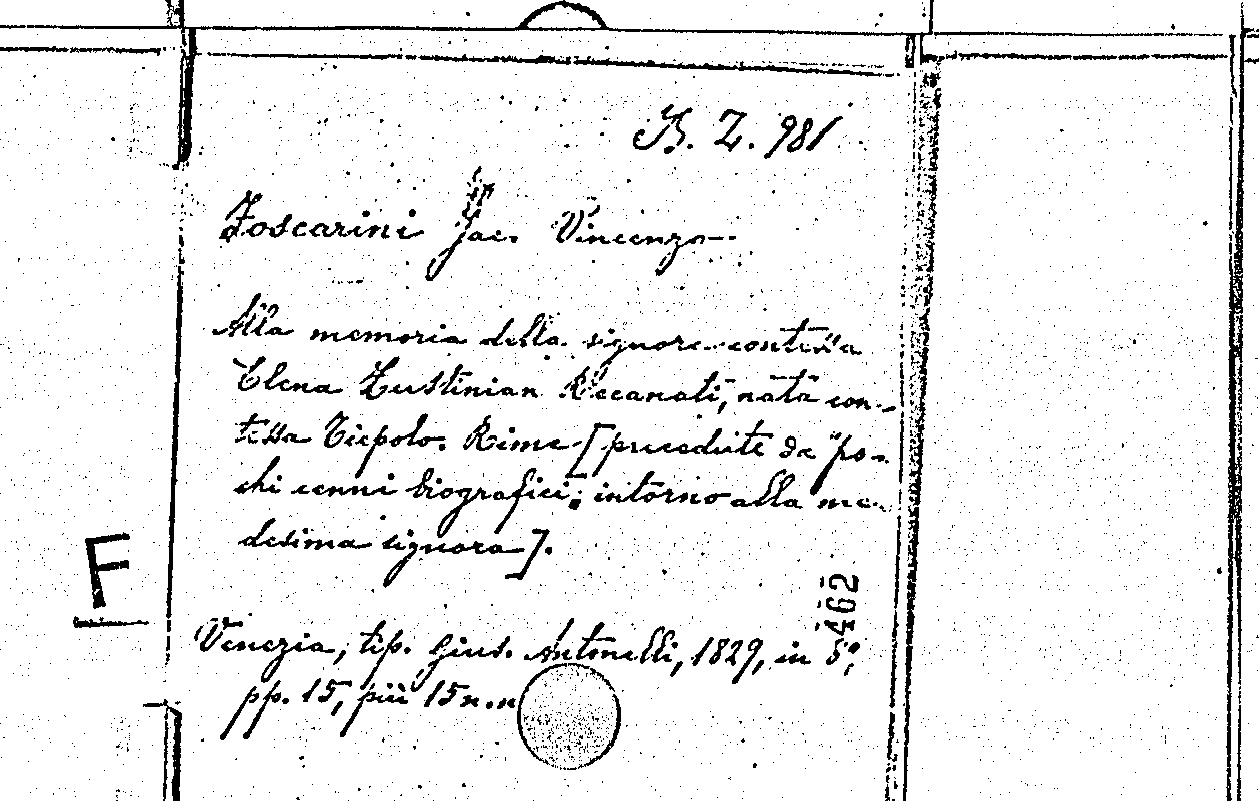 B. Z. 981
Foscarini Jac. Vincenzo
Alla memoria della signora contessa
Elena Zustinian Recanati, nata con-
tessa Tiepolo. Rime [precedute da "po-
chi cenni biografici" intorno alla me-
desima signora].
F
462
Venezia, tip. Gius. Antonelli, 1829, in 8°,
pp. 15, più 15 n.n